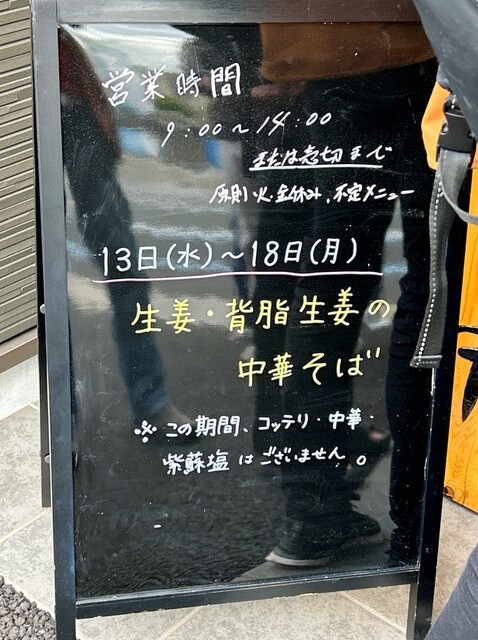 営業時間
9:00~14:00
または売切まで
原則火・金休み、不定メニュー
13日(水)~18日(月)
生姜・背脂生姜の
中華そば
※この期間、コッテリ・中華・
紫蘇塩はございません。